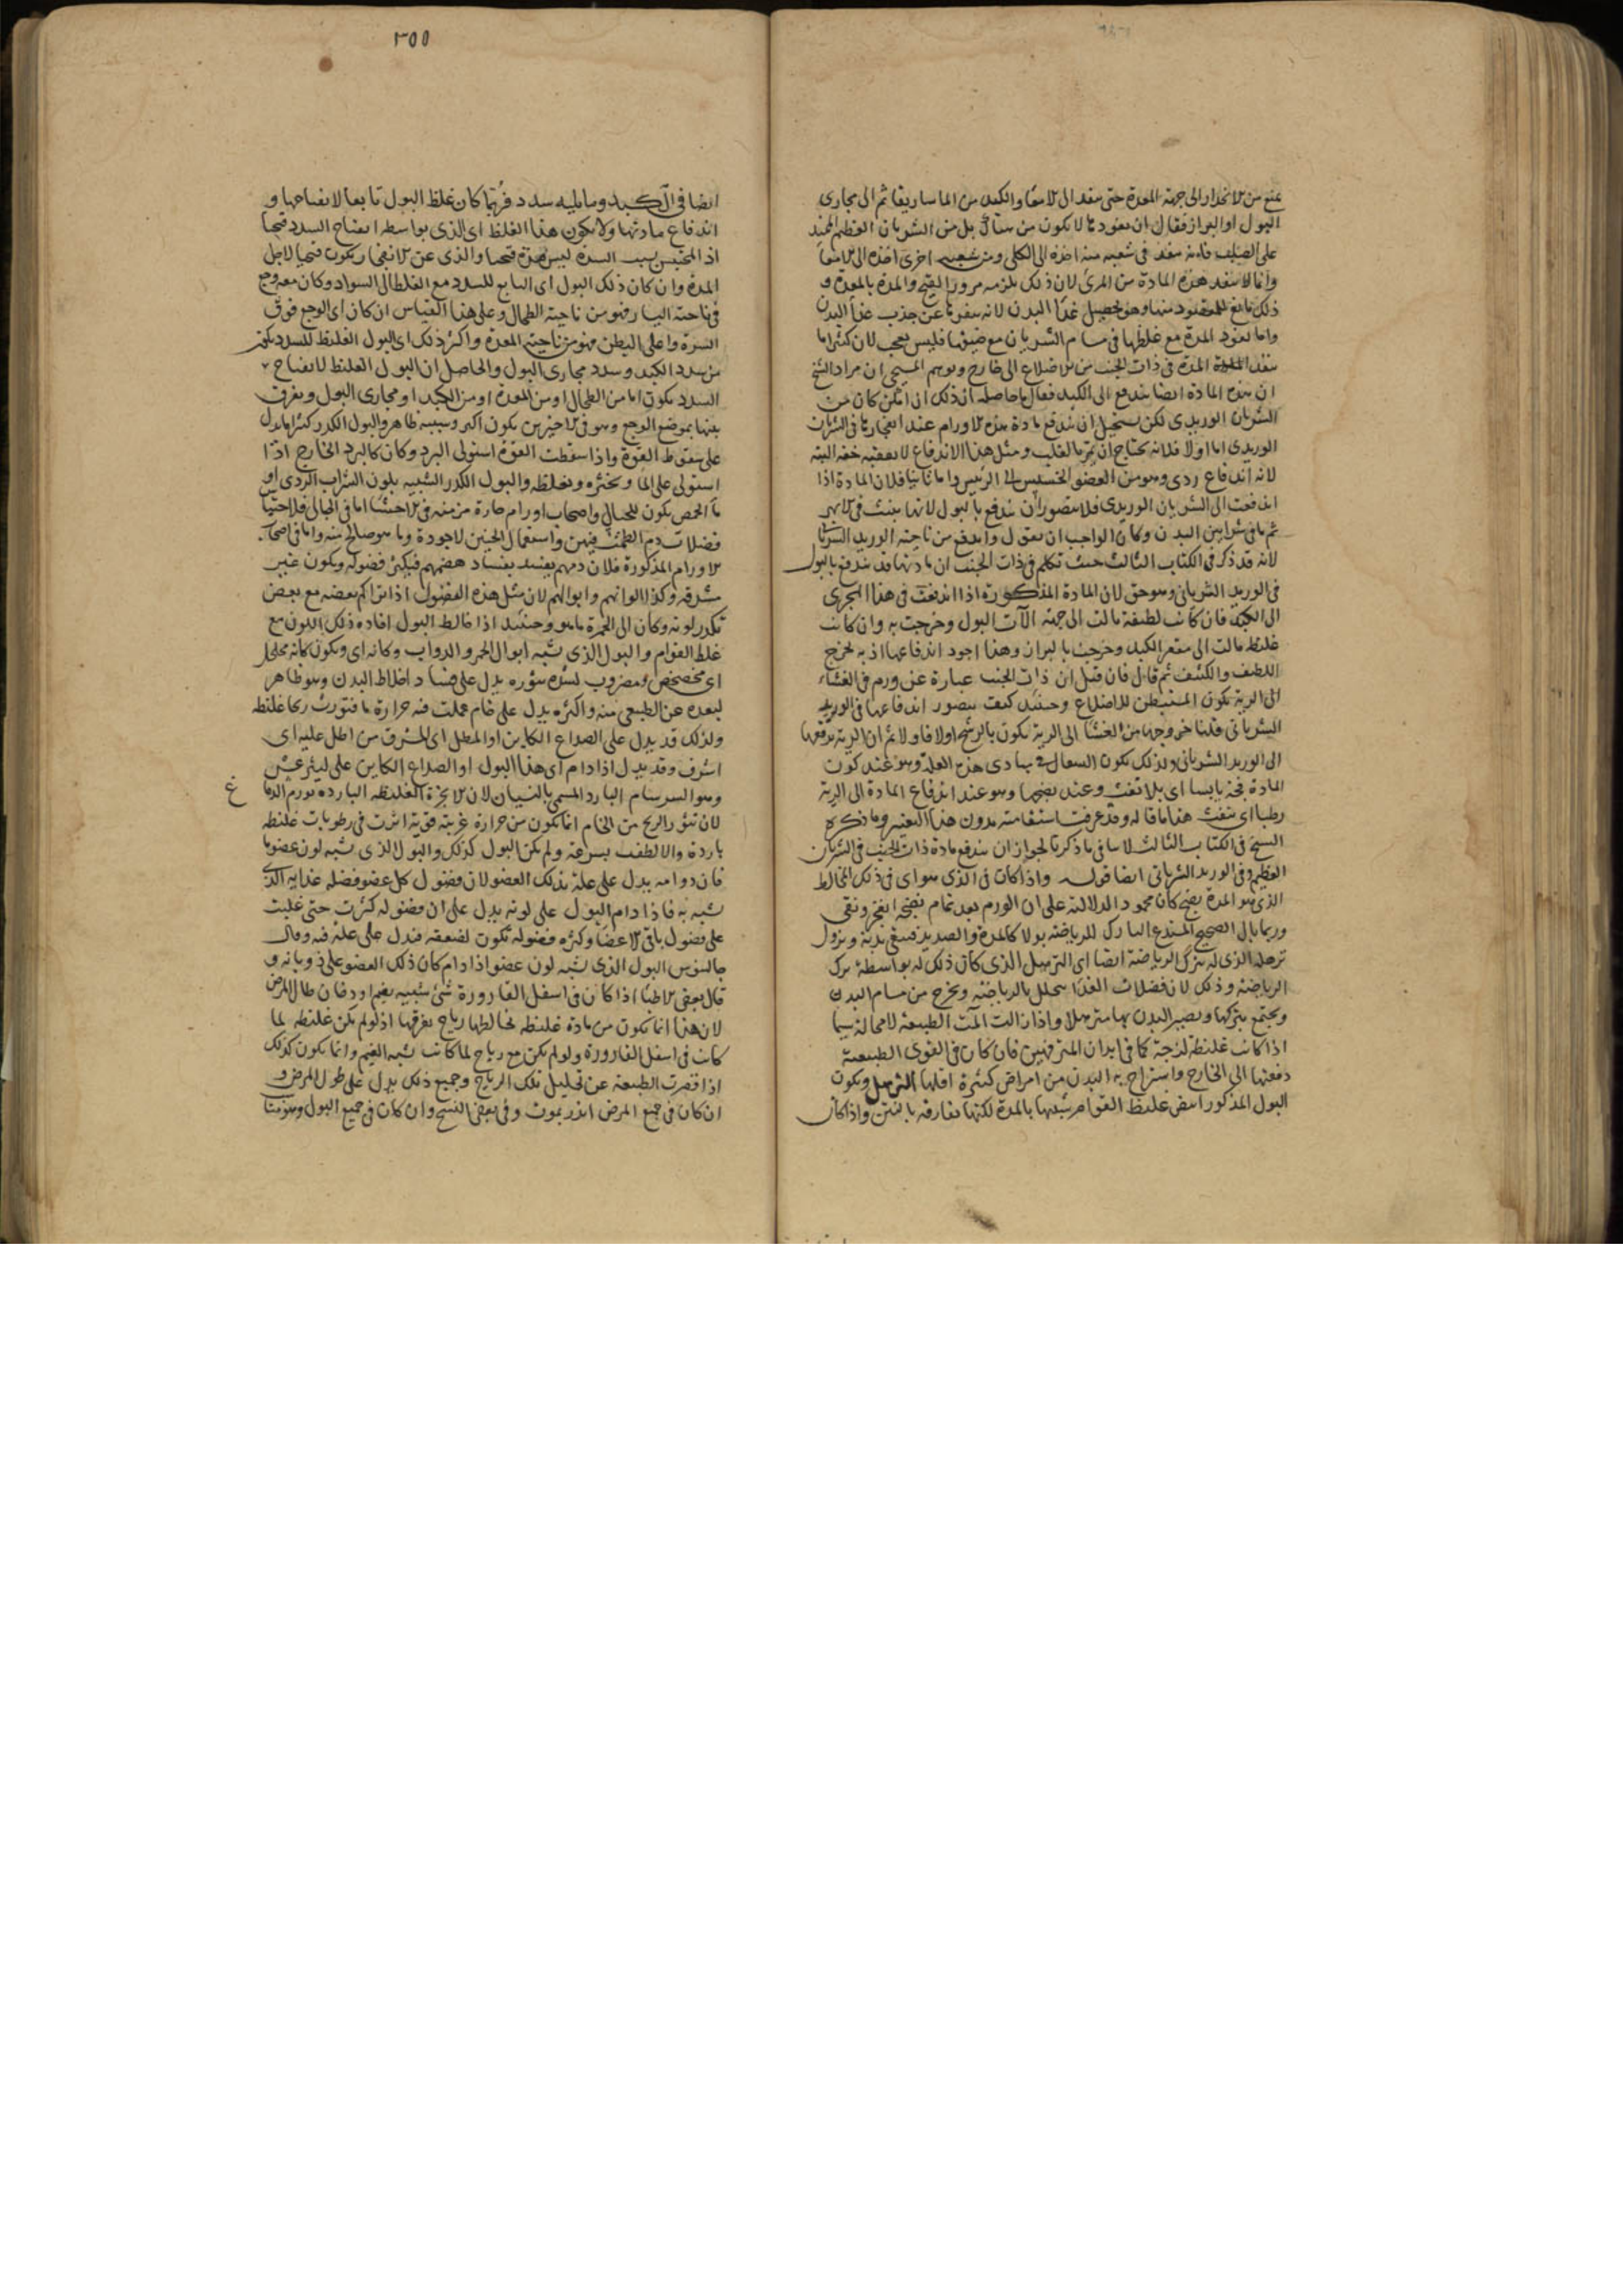 يمنع من الانحدار الى جهة المعدة حتى ينفد الى الامعا والكبد من الماساريقا ثم الى مجارى
البول او البراز فقال ان نفودها لا يكون من هناك بل من الشريان العظيم الممتد
على الصلب فانه ينفد فى شعبة منه اخذة الى الكلى ومن شعبة اخرى اخذة الى الامعا
وانما لا ينفد هذه المادة من المرى لان ذلك يلزمه مرور القيح والمدة بالمعدة و
ذلك مانع للمقصود منها وهو تحصيل غذا البدن لانه ينفرها عن جذب غذا البدن
واما نفود المدة مع غلظها فى مسام الشريان مع ضيقها فليس بعجب لان كثيرا ما
ينفد المدة فى ذات الجنب من الاضلاع الى خارج وتوهم المسيحى ان مراد الشيخ
ان هذه المادة ايضا يندفع الى الكبد فقال ما حاصله ان ذلك ان امكن كان من
الشريان الوريدى لكن يستحيل ان يندفع مادة هذه الاورام عند انفجارها فى الشريان
الوريدى اما اولا فلانه يحتاج ان تمر بالقلب ومثل هذا الاندفاع لا يعقبه خفة البتة
لانه اندفاع ردى وهو من العضو الخسيس الى الرئيس واما ثانيا فلان المادة اذا
اندفعت الى الشريان الوريدى فلا يتصور ان يندفع بالبول لانها ينبث فى الابهر
ثم باقى شرايين البدن وكان الواجب ان يقول واندفع من ناحية الوريد الشريانى
لانه قد ذكر فى الكتاب الثالث حيث تكلم فى ذات الجنب ان مادتها قد يندفع بالبول
فى الوريد الشريانى وهو حق لان المادة المذكورة اذا اندفعت فى هذا المجرى
الى الكبد فان كانت لطيفة مالت الى جهة الآت البول وخرجت به وان كانت
غليظة مالت الى مقعر الكبد وخرجت بالبراز وهذا اجود اندفاعها اذ به يخرج
اللطيف والكثيف ثم قال فان قيل ان ذات الجنب عبارة عن ورم فى الغشاء
المستبطن للاضلاع وحينئد كيف يتصور اندفاعها فى الوريد
الشريانى قلنا خروجها من الغشا الى الرية يكون بالرشح اولا فاولا ثم ان الرية تدفعها
الى الوريد الشريانى ولذلك يكون السعال فى مبادى هذه العلة وهو عند كون
المادة فجة يابسا اى بلا نفث وعند نضجها وهو عند اندفاع المادة الى الرية
رطبا اى بنفث هذا ما قاله وقد عرفت استقامته بدون هذا التغيير وما ذكره
الشيخ فى الكتاب الثالث لا ينافى ما ذكرنا لجواز ان يندفع مادة ذات الجنب فى الشريان
العظيم وفى الوريد الشريانى ايضا قوله واذا كان فى الذى هو اى فى ذلك المخالط
الذى هو المدة نضج كان محمود الدلالة على ان الورم بعد تمام نضجه انفجر ونقى
وربما بال الصحيح المتدع التارك للرياضة بولا كالمدة والصديد فينقى بدنه ويزول
ترهله الذى له بترك الرياضة ايضا اى الترهل الذى كان ذلك له بواسطة ترك
الرياضة وذلك لان فضلات الغذا يتحلل بالرياضة ويخرج من مسام البدن
ويجتمع بتركها ويصير البدن بها مترهلا واذا زالت الطبيعة لامحالة سيما
اذا كانت غليظة لزجة كما فى ابدان المترفهين فان كان فى القوى الطبيعية
دفعتها الى الخارج واستراح به البدن من امراض كثيرة اقلها الترهل ويكون
البول المذكور ابيض غليظ القوام شبيها بالمدة لكنها تفارقه بالنتن واذا كان
٢٥٥
ايضا فى الكبد وما يليه سدد فربما كان غلظ البول تابعا لانفتاحها و
اندفاع مادتها ولا يكون هذا الغلظ اى الذى بواسطة انفتاح السدد قيحيا
اذ المحتبس بسبب السدة ليس مدة قيحيا والذى عن الانفجار يكون قيحيا لاجل
المدة وان كان ذلك البول اى التابع للسدد مع الغلظ الى السواد وكان معه وجع
فى ناحية اليسار فهو من ناحية الطحال وعلى هذا القياس ان كان اى الوجع فوق
السرة واعلى البطن فهو من ناحية المعدة واكثر ذلك اى البول الغليظ للسدد يكون
من سدد الكبد وسدد مجارى البول والحاصل ان البول الغليظ لانفتاح
السدد يكون اما من الطحال او من المعدة او من الكبد او مجارى البول ويفرق
بينها بموضع الوجع وهو فى الاخيرين يكون اكبر وسببه ظاهر والبول الكدر كثيرا ما يدل
على سقوط القوة واذا سقطت القوة استولى البرد وكان كالبرد الخارج اذا
استولى على الما ويخثره ويغلظه والبول الكدر الشبيه بلون الشراب الردى او
ماء الحمص يكون للحبالى واصحاب اورام حارة مزمنة فى الاحشا اما فى الحبالى فلاحتباس
فضلات دم الطمث فيهن واستعمال الجنين لاجوده وما هو صالح منه واما فى اصحاب
الاورام المذكورة فلان دمهم يفسد بفساد هضمهم فيكثر فضوله ويكون غير
مشرقة وكذا الوانهم وابوالهم لان مثل هذه الفضول اذا تراكم بعضه مع بعض
تكدر لونه وكان الى الحمرة ما هو وحينئد اذا خالط البول افاده ذلك اللون مع
غلظ القوام والبول الذى يشبه ابوال الحمر والدواب وكانه اى ويكون كانه مخلخل
اى مخضخض ومضروب لشدة تثوره يدل على فساد اخلاط البدن وهو ظاهر
لبعده عن الطبيعى منه واكثره يدل على خام عملت فيه حرارة ما فتورث ريحا غليظة
ولذلك قد يدل على الصداع الكاين او المطل اى المشرف من اطل عليه اى
اشرف وقد يدل اذا دام اى هذا البول او الصداع الكاين على ليثرغس
وهو السرسام البارد المسمى بالنسيان لان الابخرة الغليظة الباردة تورم الدماغ
لان تثور الريح من الخام انما يكون من حرارة غريبة قوية اثرت فى رطوبات غليظة
باردة والا لطفت بسرعة ولم يكن البول كذلك والبول الذى يشبه لون عضو ما
فان دوامه يدل على علة بذلك العضو لان فضول كل عضو فضلة غذايه الذى
شبه به فاذا دام البول على لونه يدل على ان فضوله كثرت حتى غلبت
على فضول باقى الاعضا وكثرة فضوله تكون لضعفه فيدل على علة فيه وقال
جالينوس البول الذى يشبه لون عضو اذا دام كان ذلك العضو على ذوبانه و
قال بعض الاطبا اذا كان فى اسفل القارورة شئ شبيه بغيم او دخان طال المرض
لان هذا انما يكون من مادة غليظة تخالطها رياح تفرقها اذ لو لم يكن غليظة لما
كانت فى اسفل القارورة ولو لم يكن مع رياح لما كانت شبه الغيم وانما يكون كذلك
اذا قصرت الطبيعة عن تحليل تلك الرياح وجميع ذلك يدل على طول المرض و
ان كان فى جميع المرض انذر بموت وفى بعض النسخ وان كان فى جميع البول